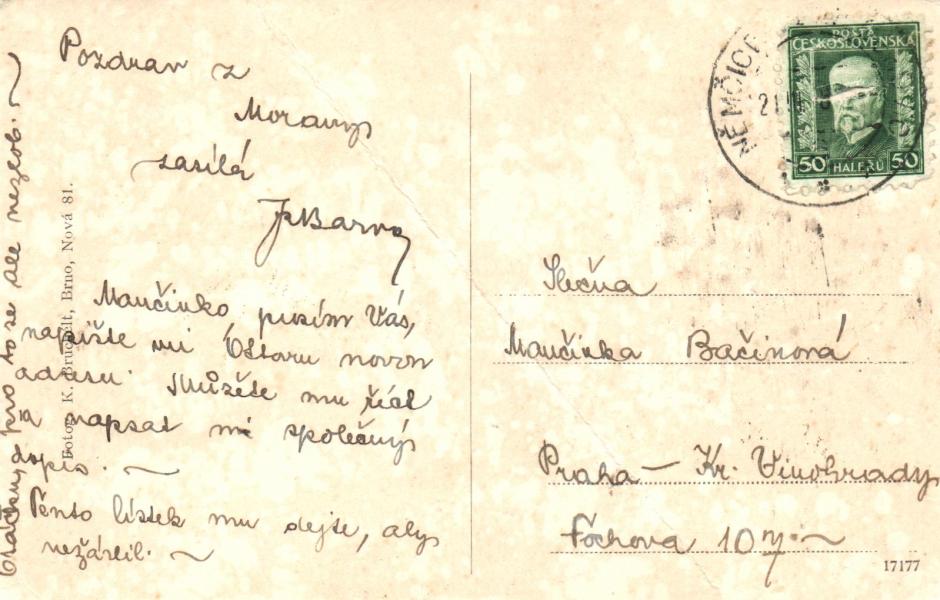 Pozdrav z
Moravy
zasílá
JBarvy
Mančinko prosím Vás,
napište mi Ottovu novou
adresu. Můžete mu říct
a napsat mi společný
dopis.
Tento lístek mu dejte, aby
nežárlil.
pro to se ale nezlob.
Foto K. Bruno, Nová 81.
POŠTA
ČESKOSLOVENSKÁ
50 HALÉŘŮ 50
NĚMČICE
Slečna
Mančinka Bačinová
Praha - Kr. Vinohrady
Fochova 10
17177